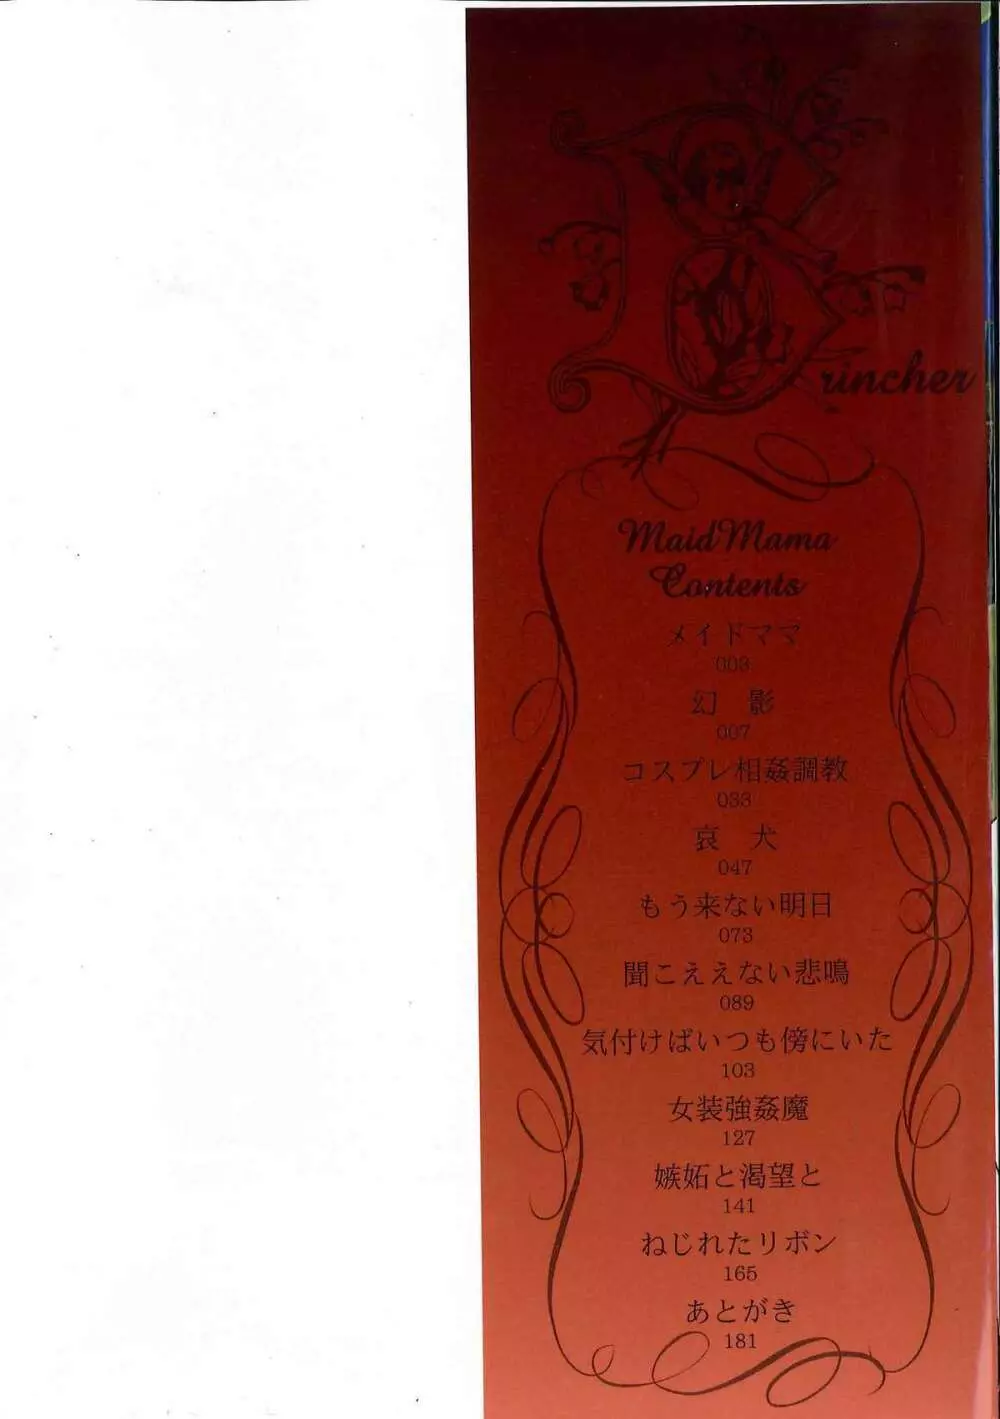 Drincher
MaidMama
Contents
メイドママ
003
幻 影
007
コスプレ相姦調教
033
哀 犬
047
もう来ない明日
073
聞こええない悲鳴
089
気付けばいつも傍にいた
103
女装強姦魔
127
嫉妬と渇望と
141
ねじれたリボン
165
あとがき
181